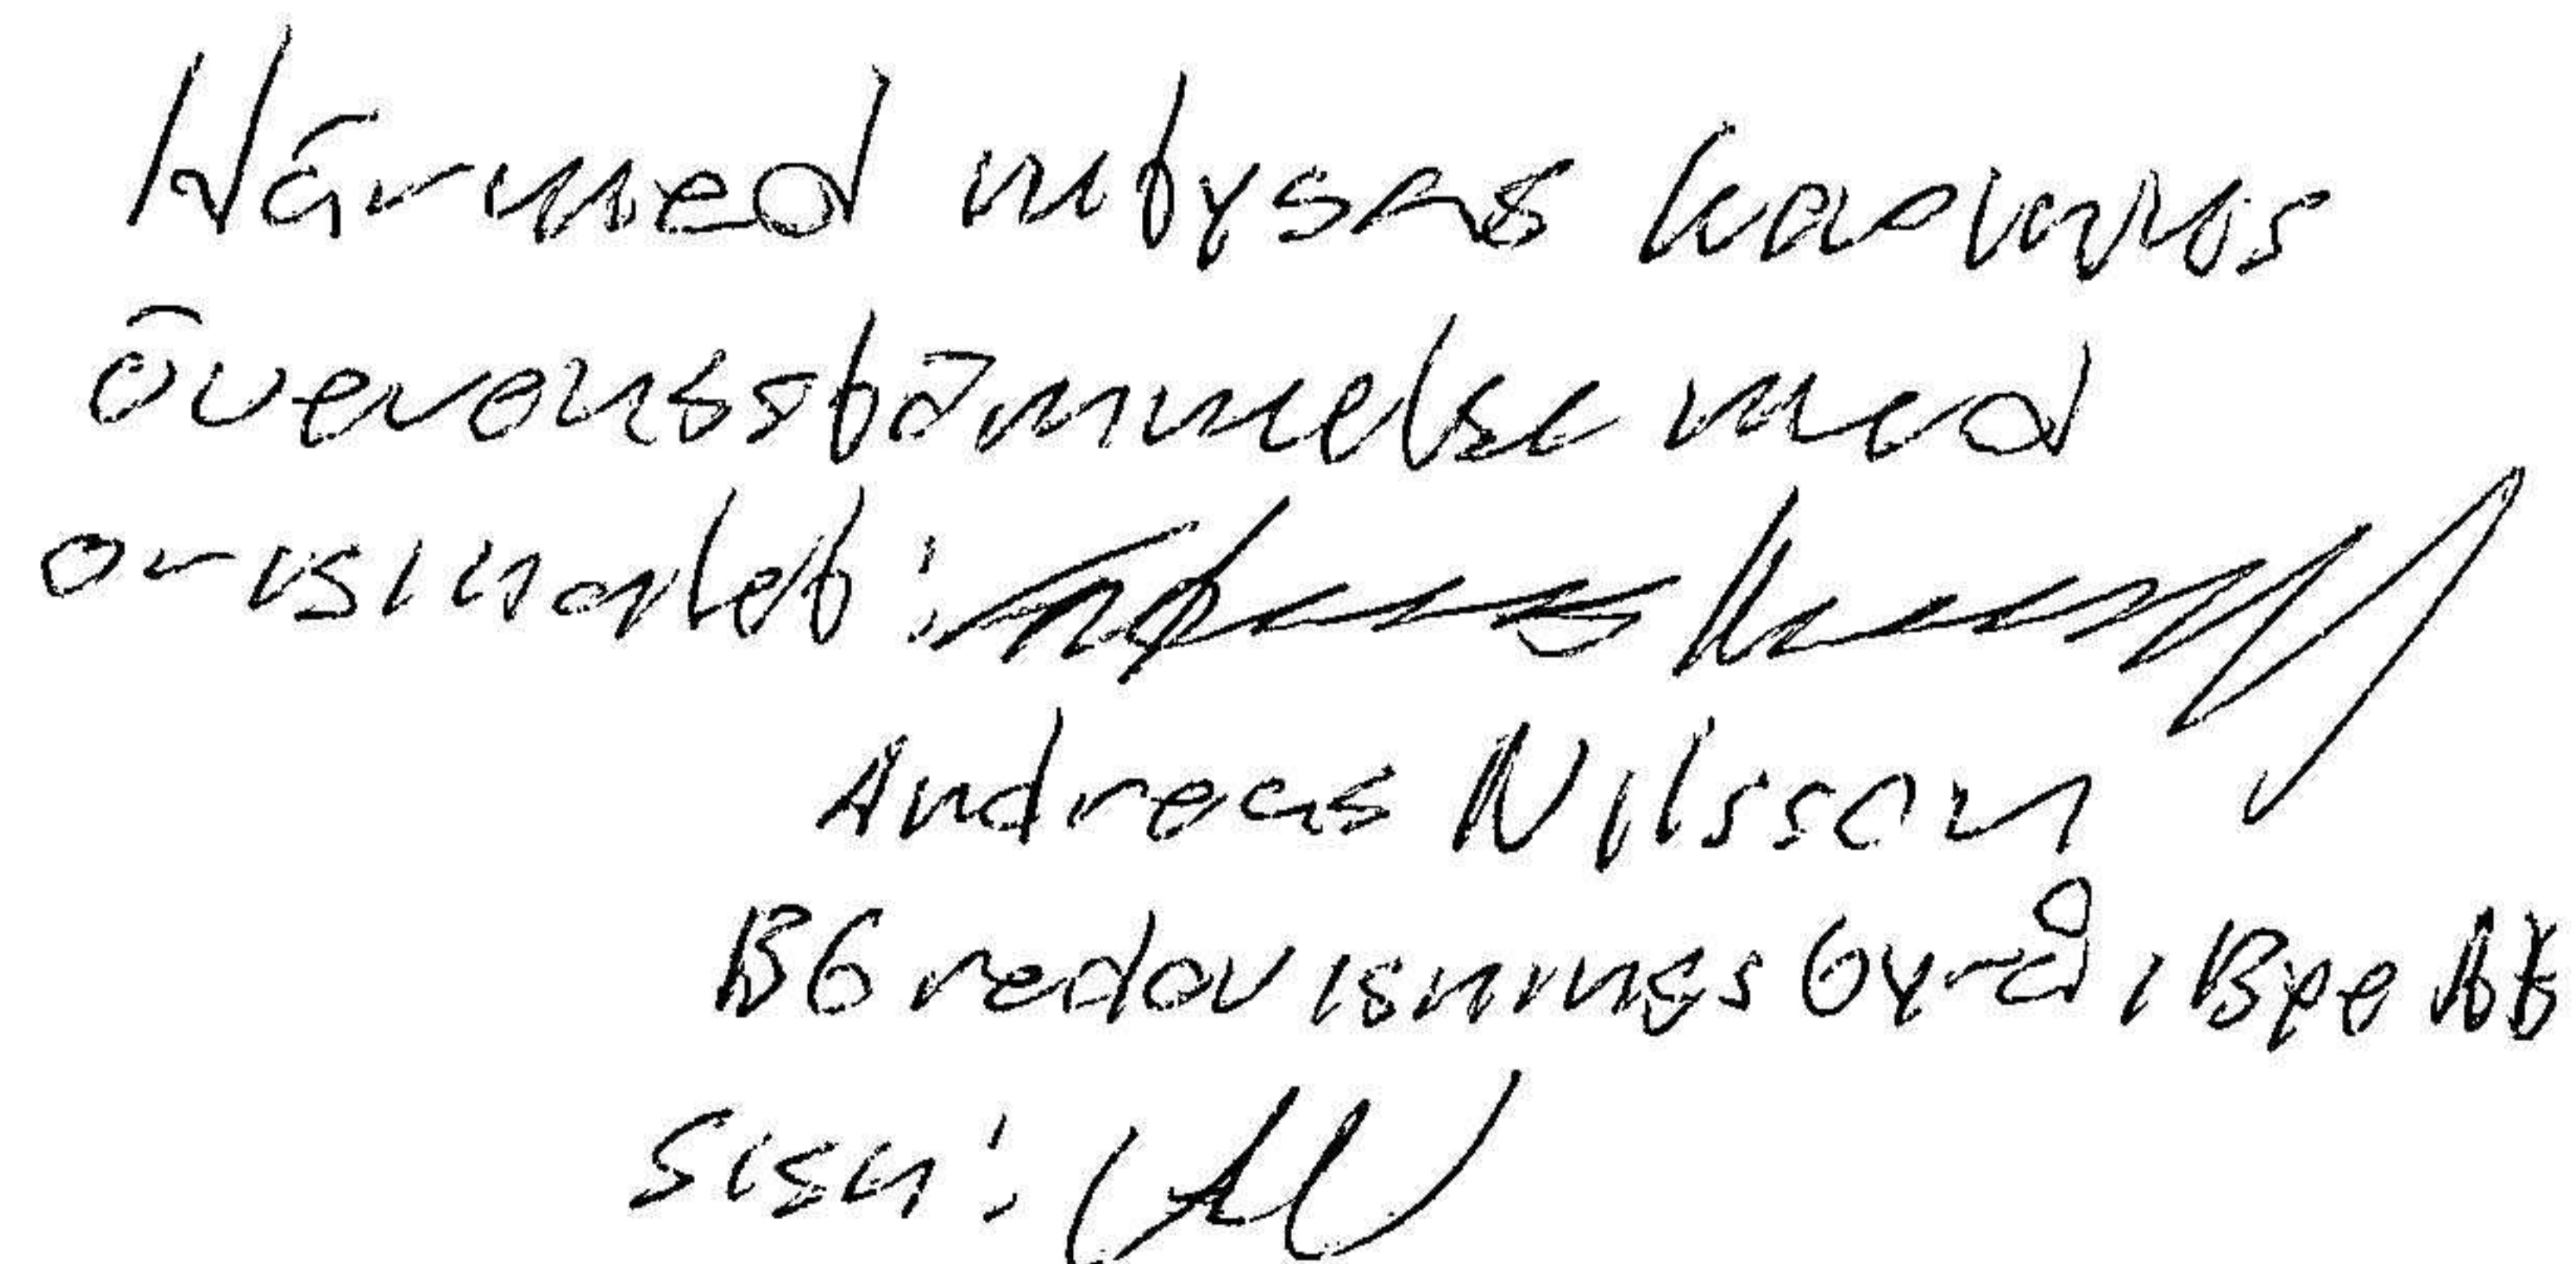 Härmed intygas kopians
överensstämmelse med
originalet:
Andreas Nilsson
BG redovisningsbyrå i Bye AB
Sign: